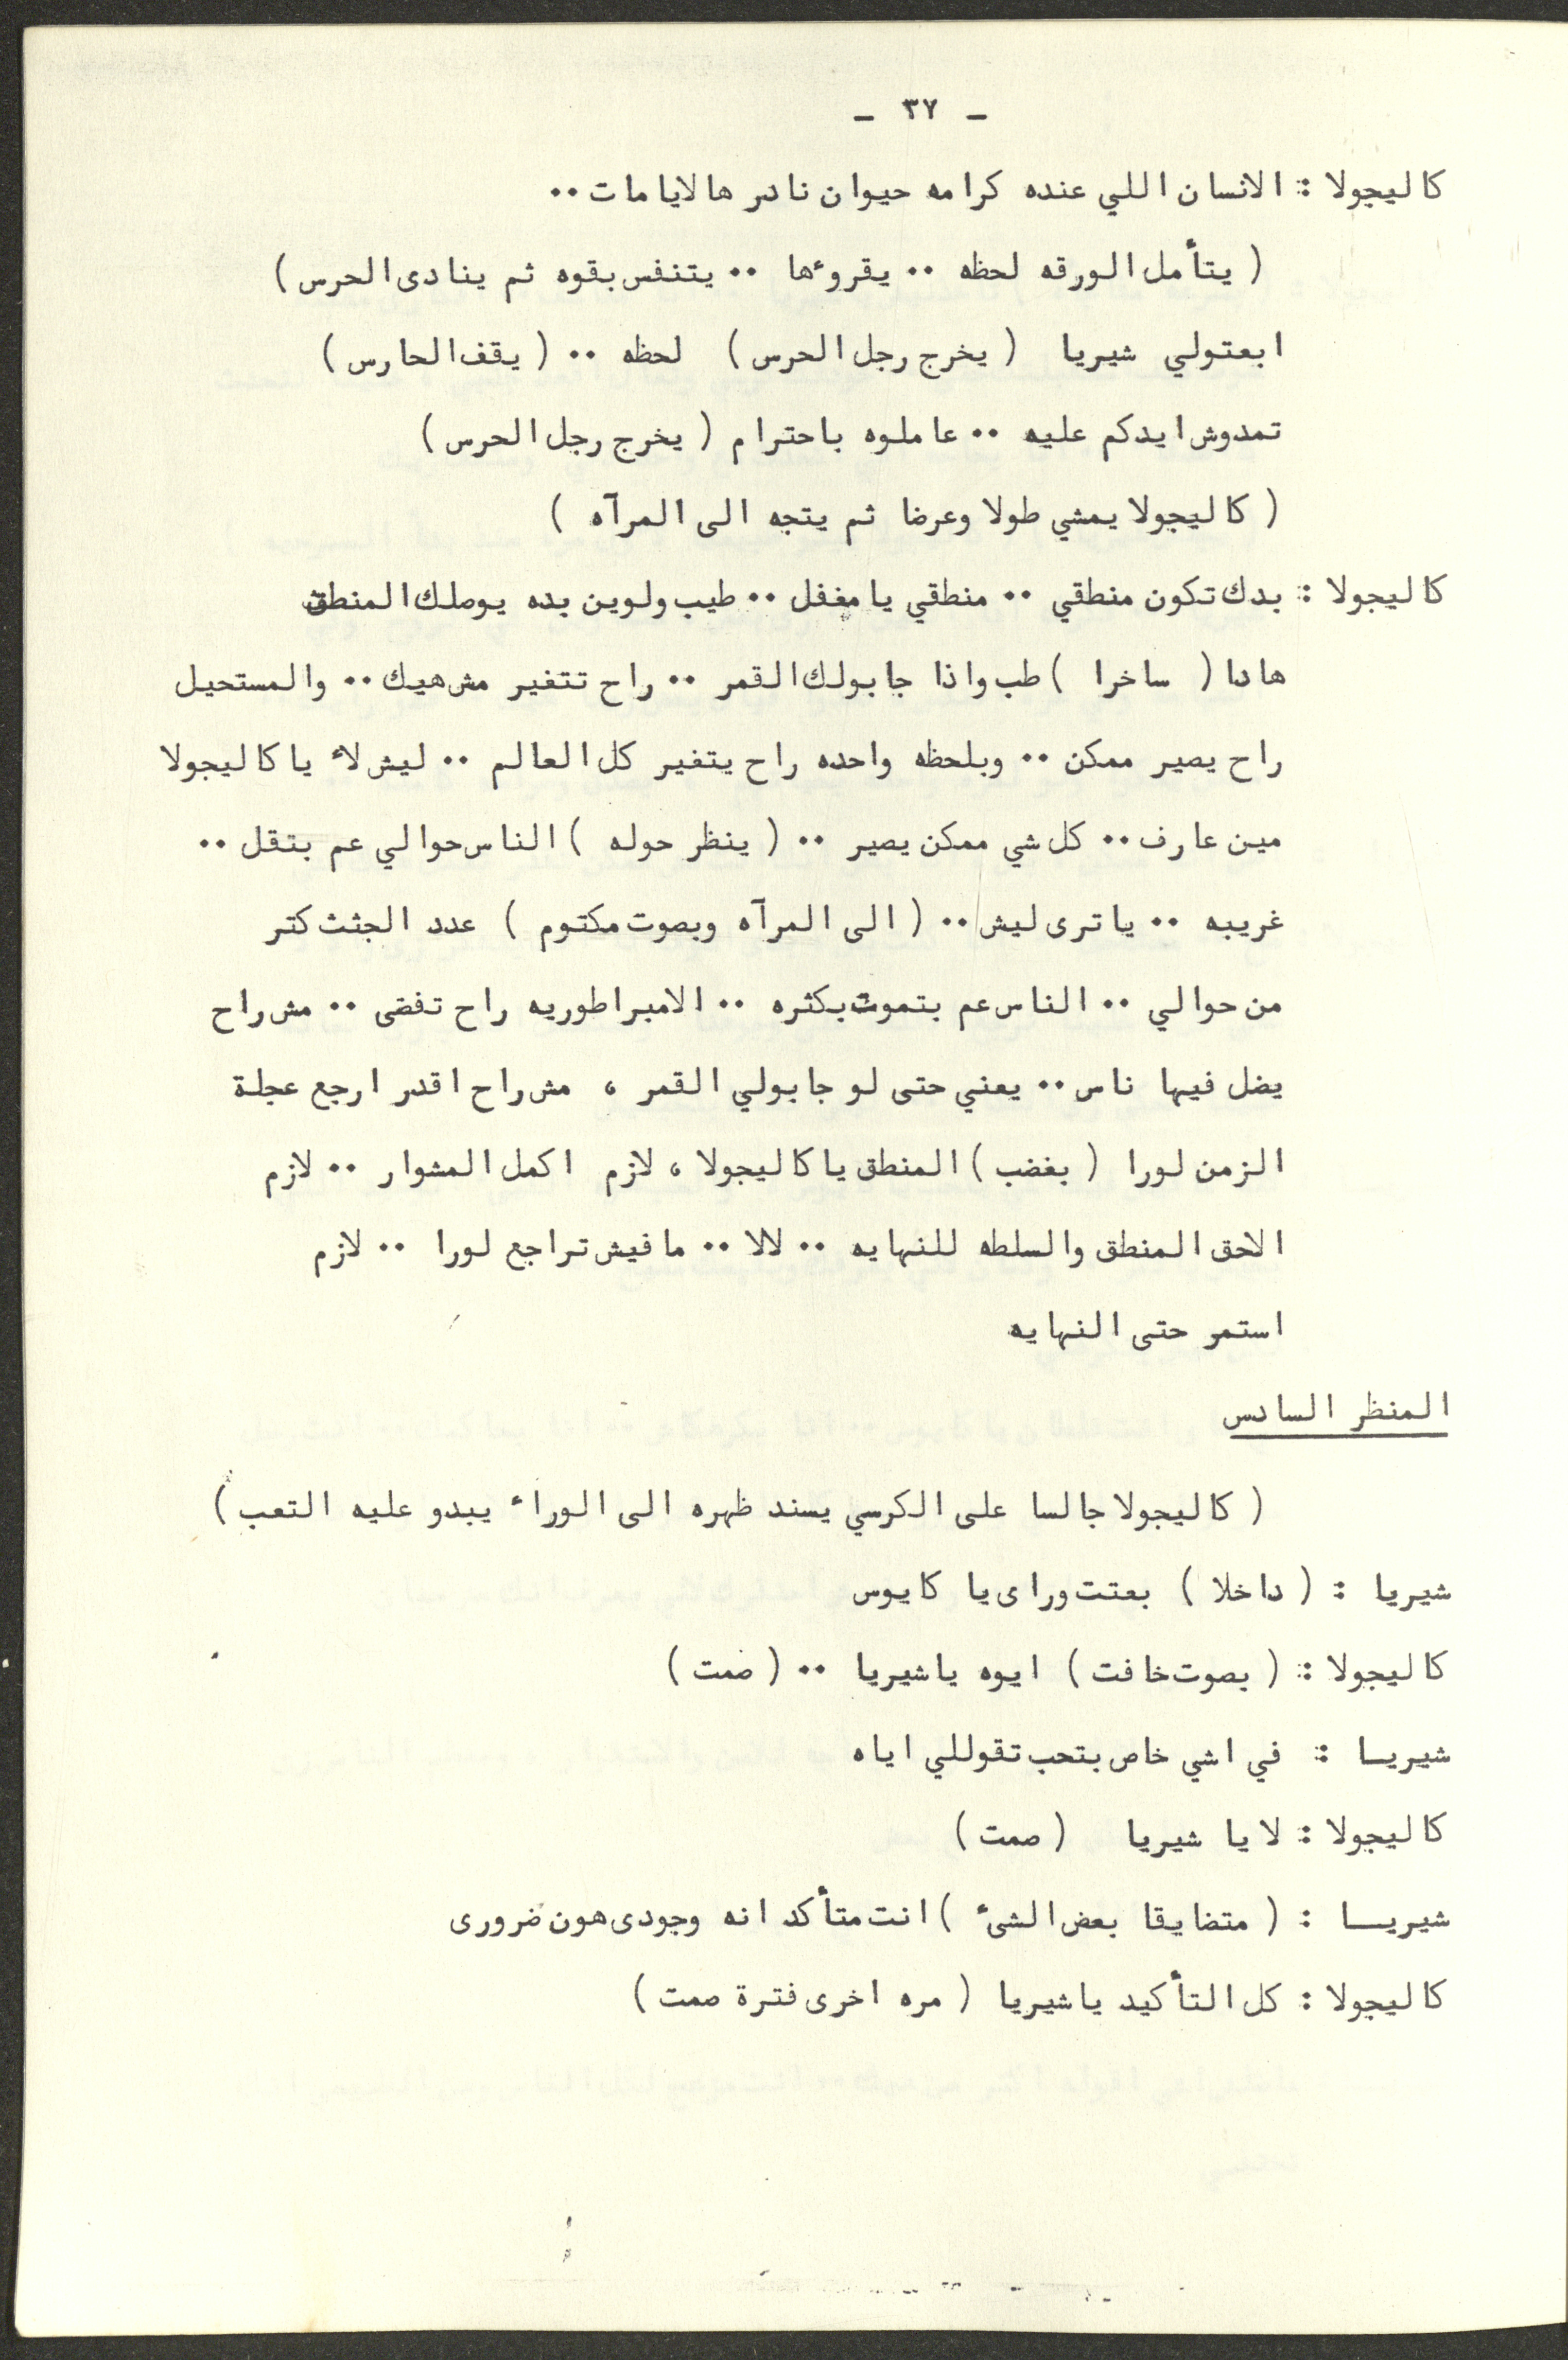 - ٣٧ -
كاليجولا : الانسان اللي عنده كرامه حيوان نادر هالايامات ..
( يتأمل الورقه لحظه .. يقروءها .. يتنفس بقوه ثم ينادى الحرس )
ابعتولي شيريا ( يخرج رجل الحرس ) لحظه .. ( يقف الحارس )
تمدوش ايدكم عليه .. عاملوه باحترام ( يخرج رجل الحرس )
( كاليجولا يمشي طولا وعرضا ثم يتجه الى المرآه )
كاليجولا : بدك تكون منطقي .. منطقي يا مغفل .. طيب ولوين بده يوصلك المنطق
هادا ( ساخرا ) طب واذا جابولك القمر .. راح تتغير مش هيك .. والمستحيل
راح يصير ممكن .. وبلحظه واحده راح يتغير كل العالم .. ليش لأ يا كاليجولا
مين عارف .. كل شي ممكن يصير .. ( ينظر حوله ) الناس حوالي عم بتقل ..
غريبه .. يا ترى ليش .. ( الى المرآه وبصوت مكتوم ) عدد الجثث كتر
من حوالي .. الناس عم بتموت بكثره .. الامبراطوريه راح تفضى .. مش راح
يضل فيها ناس .. يعني حتى لو جابولي القمر ، مش راح اقدر ارجع عجلة
الزمن لورا ( بغضب ) المنطق يا كاليجولا ، لازم اكمل المشوار .. لازم
الاحق المنطق والسلطه للنهايه .. لالا .. مافيش تراجع لورا .. لازم
استمر حتى النهايه
المنظر السادس
( كاليجولا جالسا على الكرسي يسند ظهره الى الوراء يبدو عليه التعب )
شيريا : ( داخلا ) بعتت وراى يا كايوس
كاليجولا : ( بصوت خافت ) ايوه يا شيريا .. ( صمت )
شيريـا : في اشي خاص بتحب تقوللي اياه
كاليجولا : لا يا شيريا ( صمت )
شيريــا : ( متضايقا بعض الشىء ) انت متأكد انه وجودى هون ضرورى
كاليجولا : كل التأكيد يا شيريا ( مره اخرى فترة صمت )